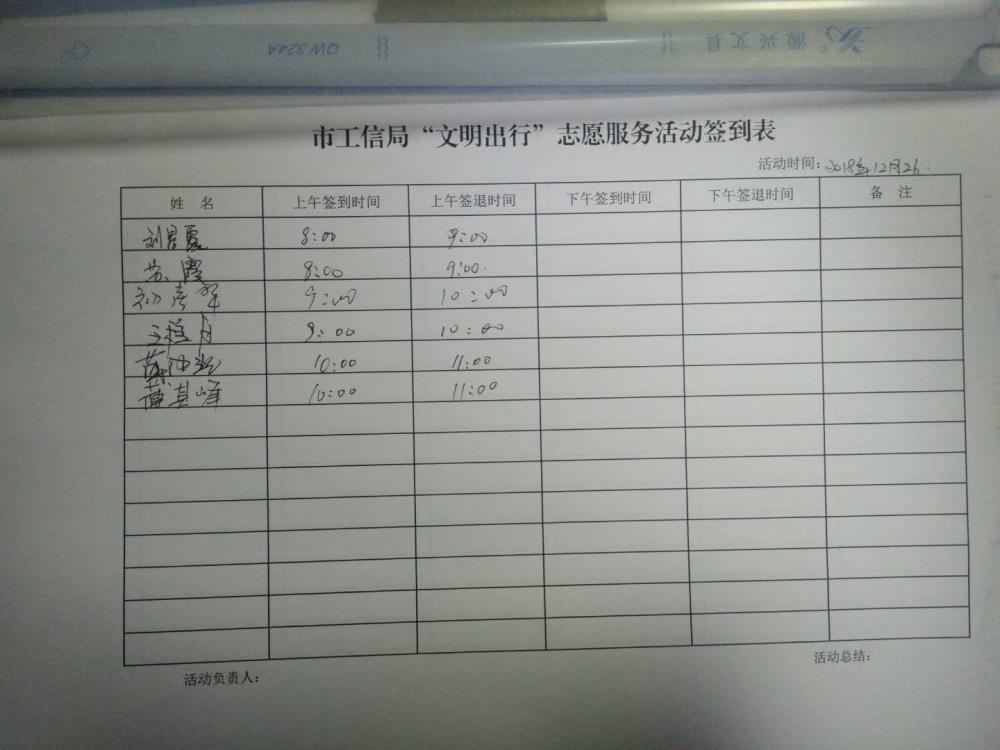 源兴文具
QW324A
市工信局“文明出行”志愿服务活动签到表
活动时间：2018年12月26.
姓 名 上午签到时间 上午签退时间 下午签到时间 下午签退时间 备 注
刘 霞 8:00 9:00
苏 霞 8:00 9:00.
初彦 9:00 10:00
王 月 9:00 10:00
10:00 11:00
其峰 10:00 11:00
活动负责人： 活动总结：